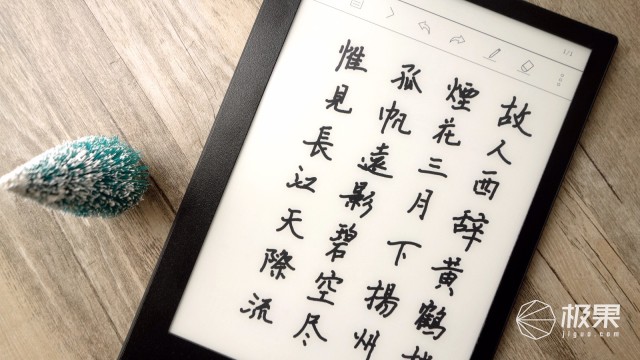 1/1
故人西辞黄鶴
煙花三月下揚州
孤帆遠影碧空尽
惟見長江天際流
极果
jiguo.com